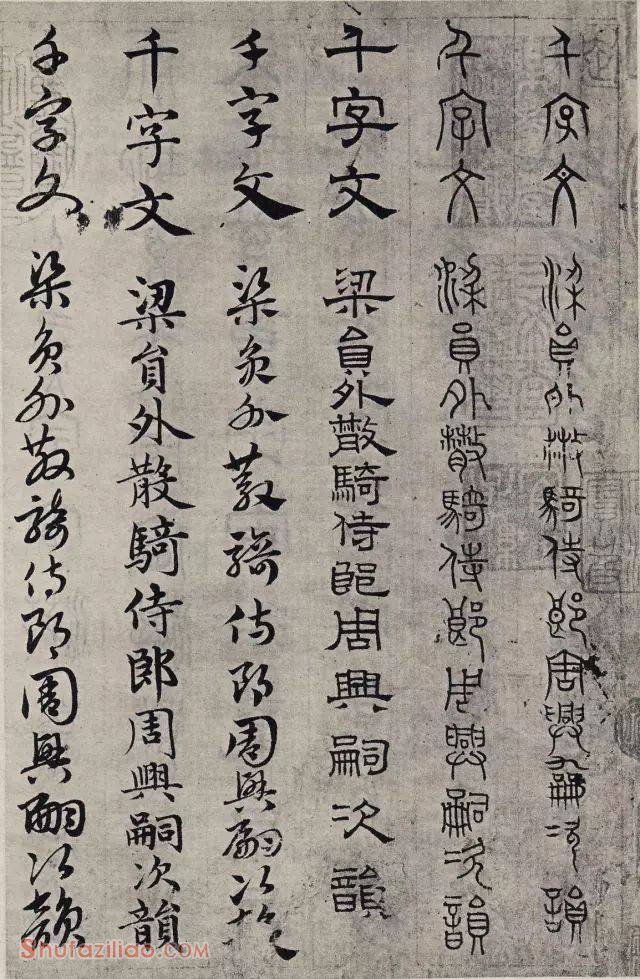 千字文 梁員外散騎侍郎周興嗣次韻
千字文 梁員外散騎侍郎周興嗣次韻
千字文 梁員外散騎侍郎周興嗣次韻
千字文 梁員外散騎侍郎周興嗣次韻
千字文 梁員外散騎侍郎周興嗣次韻
千字文 梁員外散騎侍郎周興嗣次韻
Shufaziliao.com